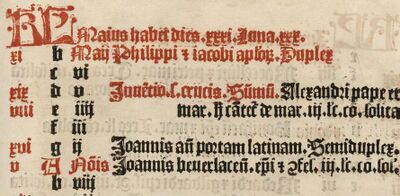 KL Maius habet dies .xxxi. Luna .xxx.
xi b Maij Philippi ⁊ iacobi aploꝝ. Duplex
c vi
xix d v Inuẽtio .s. crucis. Sũmũ. Alexandri pape et
viii e iiij mar. ij cãtet de mar. iij. lc̃. cõ. solita
f iij
xvi g ij Joannis añ portam latinam. Semiduplex.
v A Nõis Joannis beuerlaceñ. ep̃i ⁊ ꝯfel. iij. lc̃. cõ. solita
b viij